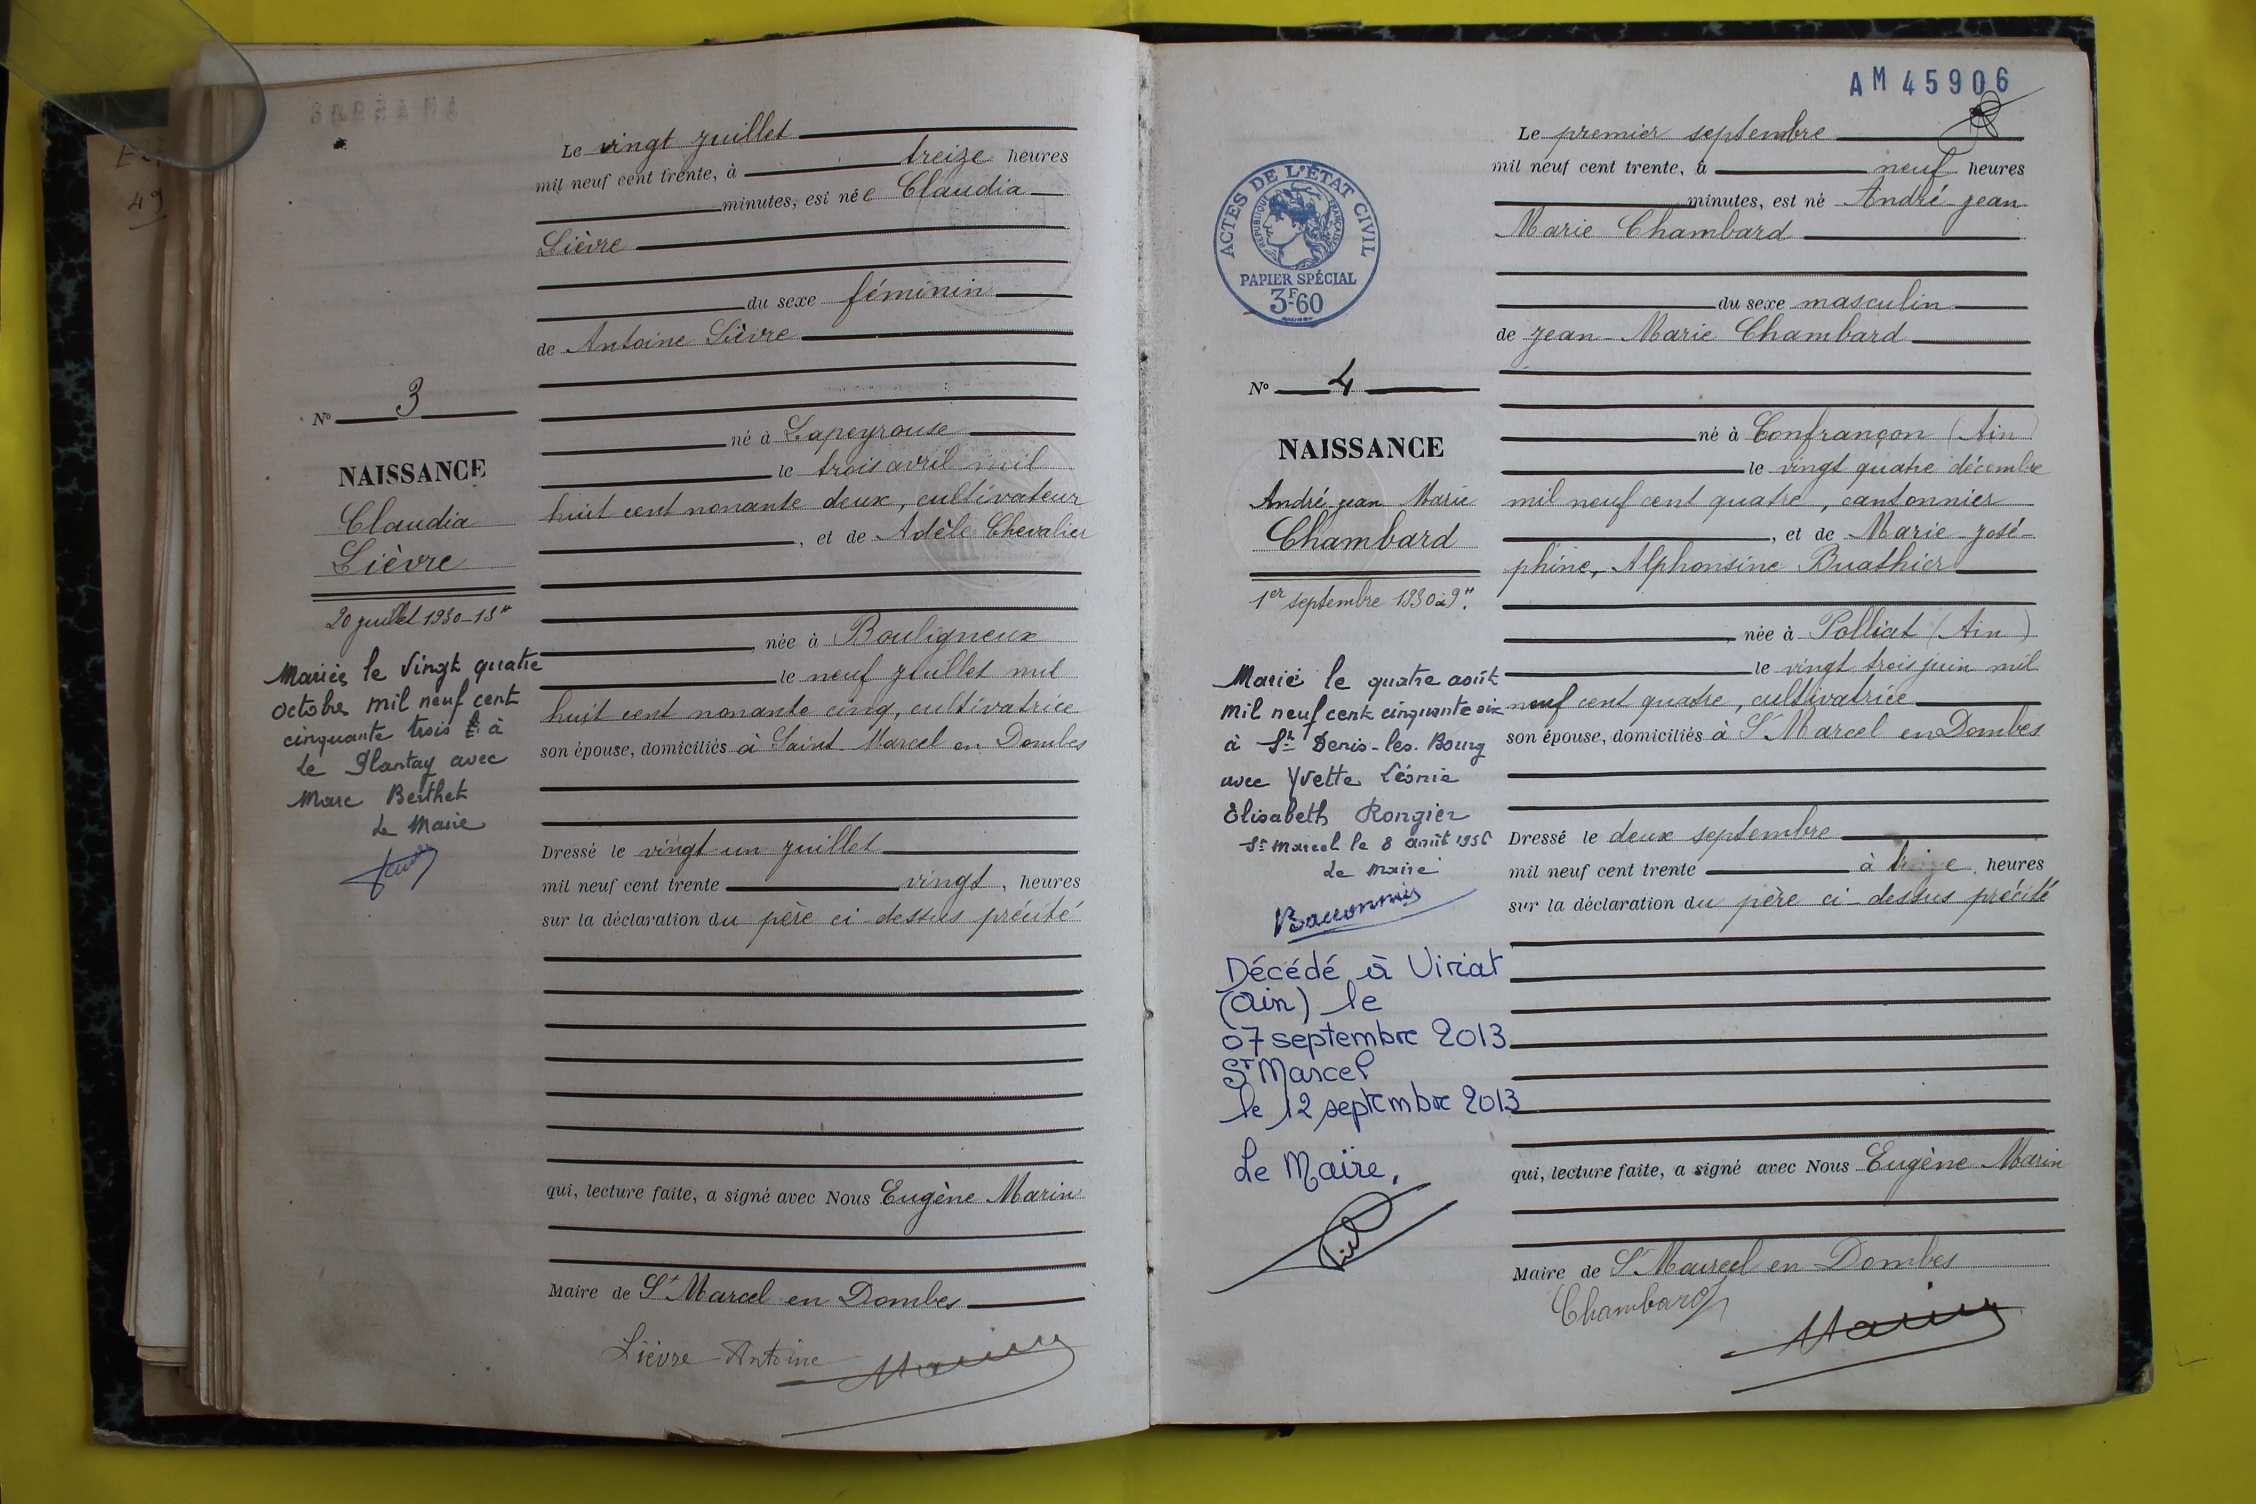 Le vingt juillet
mil neuf cent trente, à treize heures
minutes, est née Claudia
Lièvre
du sexe féminin
de Antoine Lièvre
né à Lapeyrouse
le trois avril mil
huit cent nonante deux, cultivateur
, et de Adèle Chevalier
née à Bouligneux
le neuf juillet mil
huit cent nonante cinq, cultivatrice
son épouse, domiciliés à Saint Marcel en Dombes
Dressé le vingt-un juillet
mil neuf cent trente vingt, heures
sur la déclaration du père ci-dessus précité
qui, lecture faite, a signé avec Nous Eugène Marin
Maire de St Marcel en Dombes
Lièvre Antoine Marin
No 3
NAISSANCE
Claudia
Lièvre
20 juillet 1930-13H
Mariée le vingt quatre
octobre mil neuf cent
cinquante trois à
Le Plantay avec
Marc Berthet
Le Maire
AM 45906
ACTES DE L'ÉTAT CIVIL
RÉPUBLIQUE FRANÇAISE
PAPIER SPÉCIAL
3F60
Le premier septembre
mil neuf cent trente, à neuf heures
minutes, est né André Jean
Marie Chambard
du sexe masculin
de Jean-Marie Chambard
né à Confrançon (Ain)
le vingt quatre décembre
mil neuf cent quatre, cantonnier
, et de Marie-José-
phine, Alphonsine Buathier
née à Polliat (Ain)
le vingt trois juin mil
neuf cent quatre, cultivatrice
son épouse, domiciliés à St Marcel en Dombes
Dressé le deux septembre
mil neuf cent trente à heures
sur la déclaration du père ci-dessus précité
qui, lecture faite, a signé avec Nous Eugène Marin
Maire de St Marcel en Dombes
Chambard Marin
No 4
NAISSANCE
André Jean Marie
Chambard
1er septembre 1930 à 9H.
Marié le quatre août
mil neuf cent cinquante six
à St Denis-les-Bourg
avec Yvette Léonie
Elisabeth Rongier
St Marcel le 8 août 1956
Le Maire
Décédé à Viriat
(Ain) le
07 septembre 2013
St Marcel
le 12 septembre 2013
Le Maire,